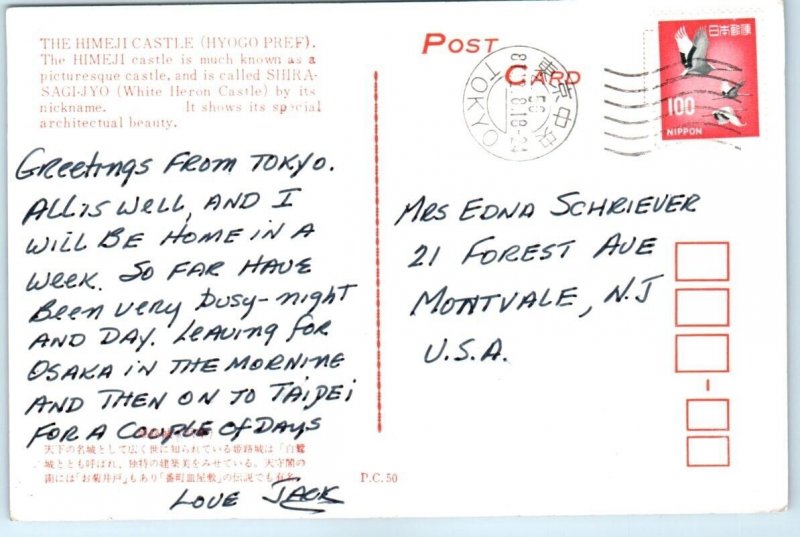 THE HIMEJI CASTLE (HYOGO PREF).
The HIMEJI castle is much known as a
picturesque castle, and is called SHIRA-
SAGI-JYO (White Heron Castle) by its
nickname. It shows its special
architectual beauty.
POST
CARD
東京中央
TOKYO
日本郵便
100
NIPPON
Greetings FROM TOKYO.
ALL is well, AND I
WILL BE HOME IN A
week. SO FAR HAVE
Been very busy-night
AND DAY. Leaving for
OSAKA IN THE MORNING
AND THEN ON TO TAIPEI
FOR A COUPLE of DAYS
LOVE JACK
MRS EDNA SCHRIEVER
21 FOREST AVE
MONTVALE, N.J
U.S.A.
天下の名城として広く世に知られている姫路城は「白鷺
城ともよばれ、独特の建築美をみせている。天守閣の
南には「お菊井戸」もあり「番町皿屋敷」の伝説でも有名。
P.C.50